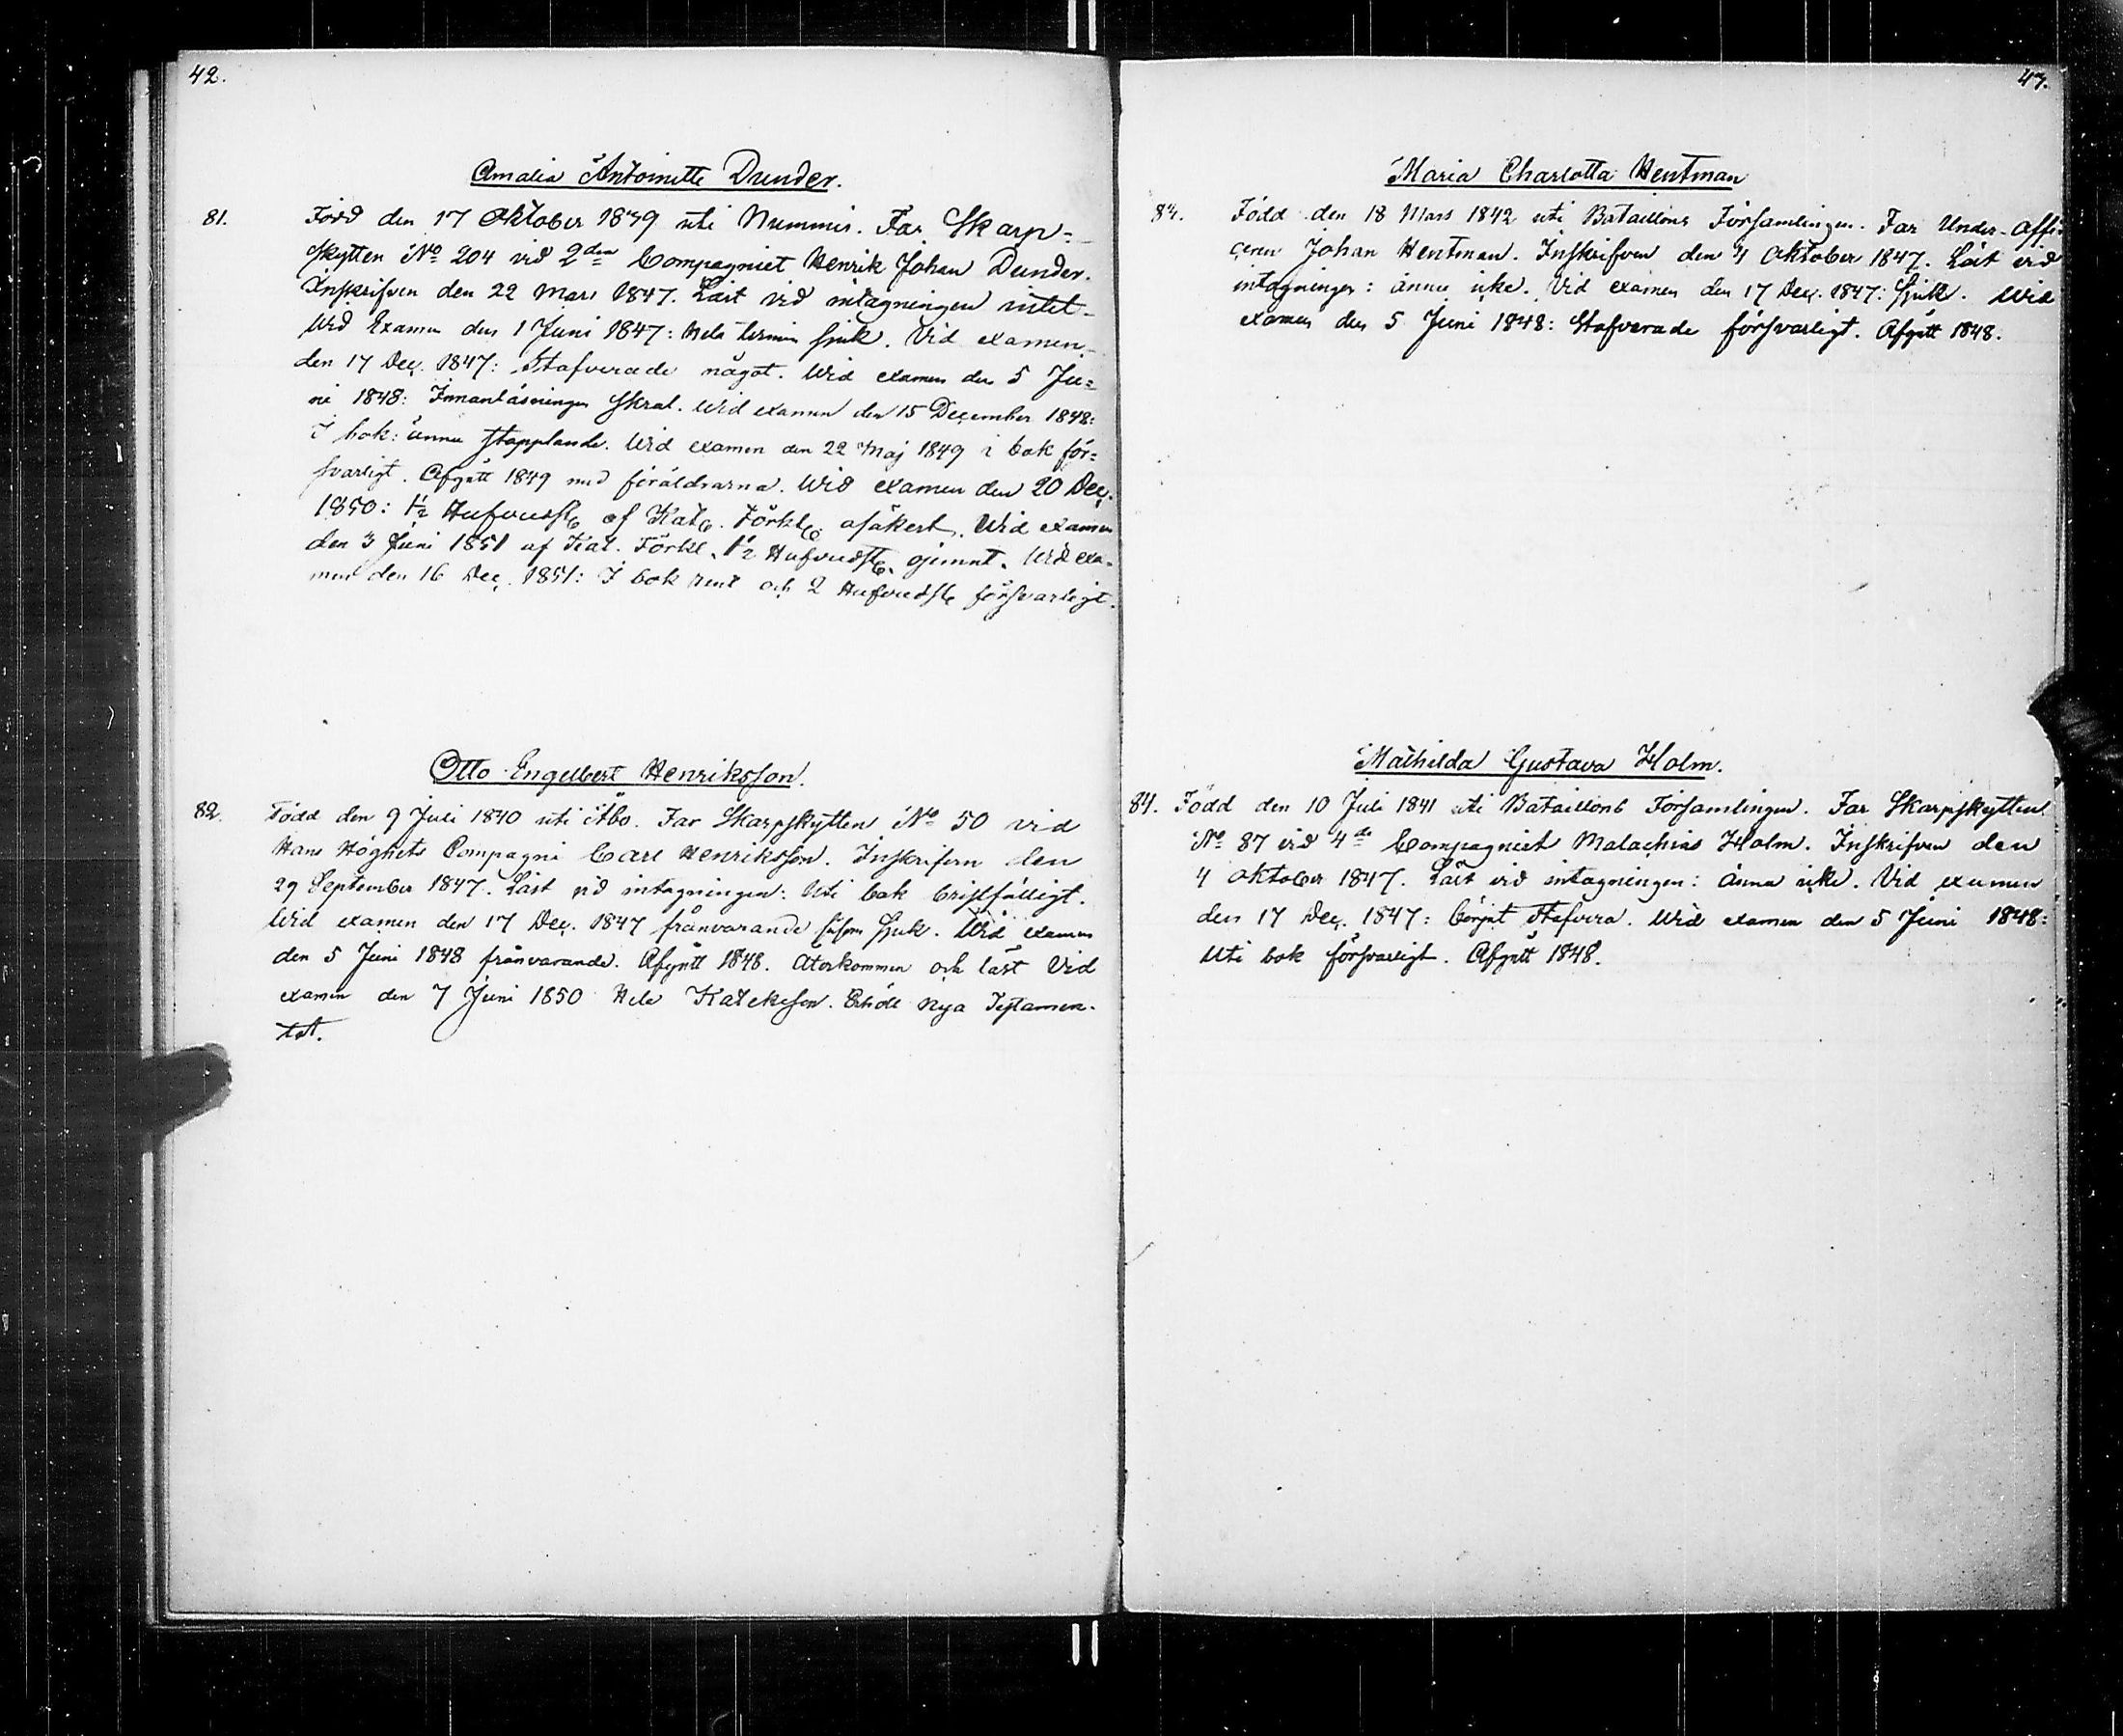 42.
Amalia Antoinette Dunder.
81. Född den 17 Oktober 1839 uti Nummis. Far Skarp=
skytten No 204 vid 2den Compagniet Henrik Johan Dunder.
Inskrifven den 22 Mars 1847. Läst vid intagningen intet.
Wid Examen den 1 Juni 1847: Hela termin sjuk. Vid examen
den 17 Dec. 1847: Stafverade något. Wid examen den 5 Ju=
ni 1848: Innanläsningen skral. Wid examen den 15 December 1848:
I bok: ännu stapplande. Wid examen den 22 Maj 1849 i bok för=
svarligt. Afgått 1849 med föräldrarna. Wid examen den 20 Dec.
1850: 1½ Hufvudst. af Kat. Förkl. osäkert. Wid examen
den 3 Juni 1851 af Kat. Förkl. 1½ Hufvudst. ojemnt. Wid exa=
men den 16 Dec. 1851: I bok rent och 2 Hufvudst. försvarligt.
Otto Engelbert Henriksson.
82. Född den 9 Juli 1840 uti Åbo. Far Skarpskytten No 50 vid
Hans Höghets Compagni Carl Henriksson. Inskrifven den
29 September 1847. Läst vid intagningen: Uti bok bristfälligt.
Wid examen den 17 Dec. 1847 frånvarande såsom Sjuk. Wid examen
den 5 Juni 1848 frånvarande. Afgått 1848. Återkommen och läst Vid
examen den 7 Juni 1850 Hela Katekesen. Erhöll Nya Testamen=
tet.
43.
Maria Charlotta Hentman
84. Född den 18 Mars 1842 uti Bataillons Församlingen. Far Under-offi=
ceren Johan Hentman. Inskrifven den 4 Oktober 1847. Läst vid
intagningen: ännu icke. Vid examen den 17 Dec. 1847: Sjuk. Wid
examen den 5 Juni 1848: Stafverade försvarligt. Afgått 1848.
Mathilda Gustava Holm.
84. Född den 10 Juli 1841 uti Bataillons Församlingen. Far Skarpskytten
No 87 vid 4de Compagniet Malachias Holm. Inskrifven den
4 Oktober 1847. Läst vid intagningen: ännu icke. Vid examen
den 17 Dec. 1847: börjat stafvera. Wid examen den 5 Juni 1848:
Uti bok försvarligt. Afgått 1848.